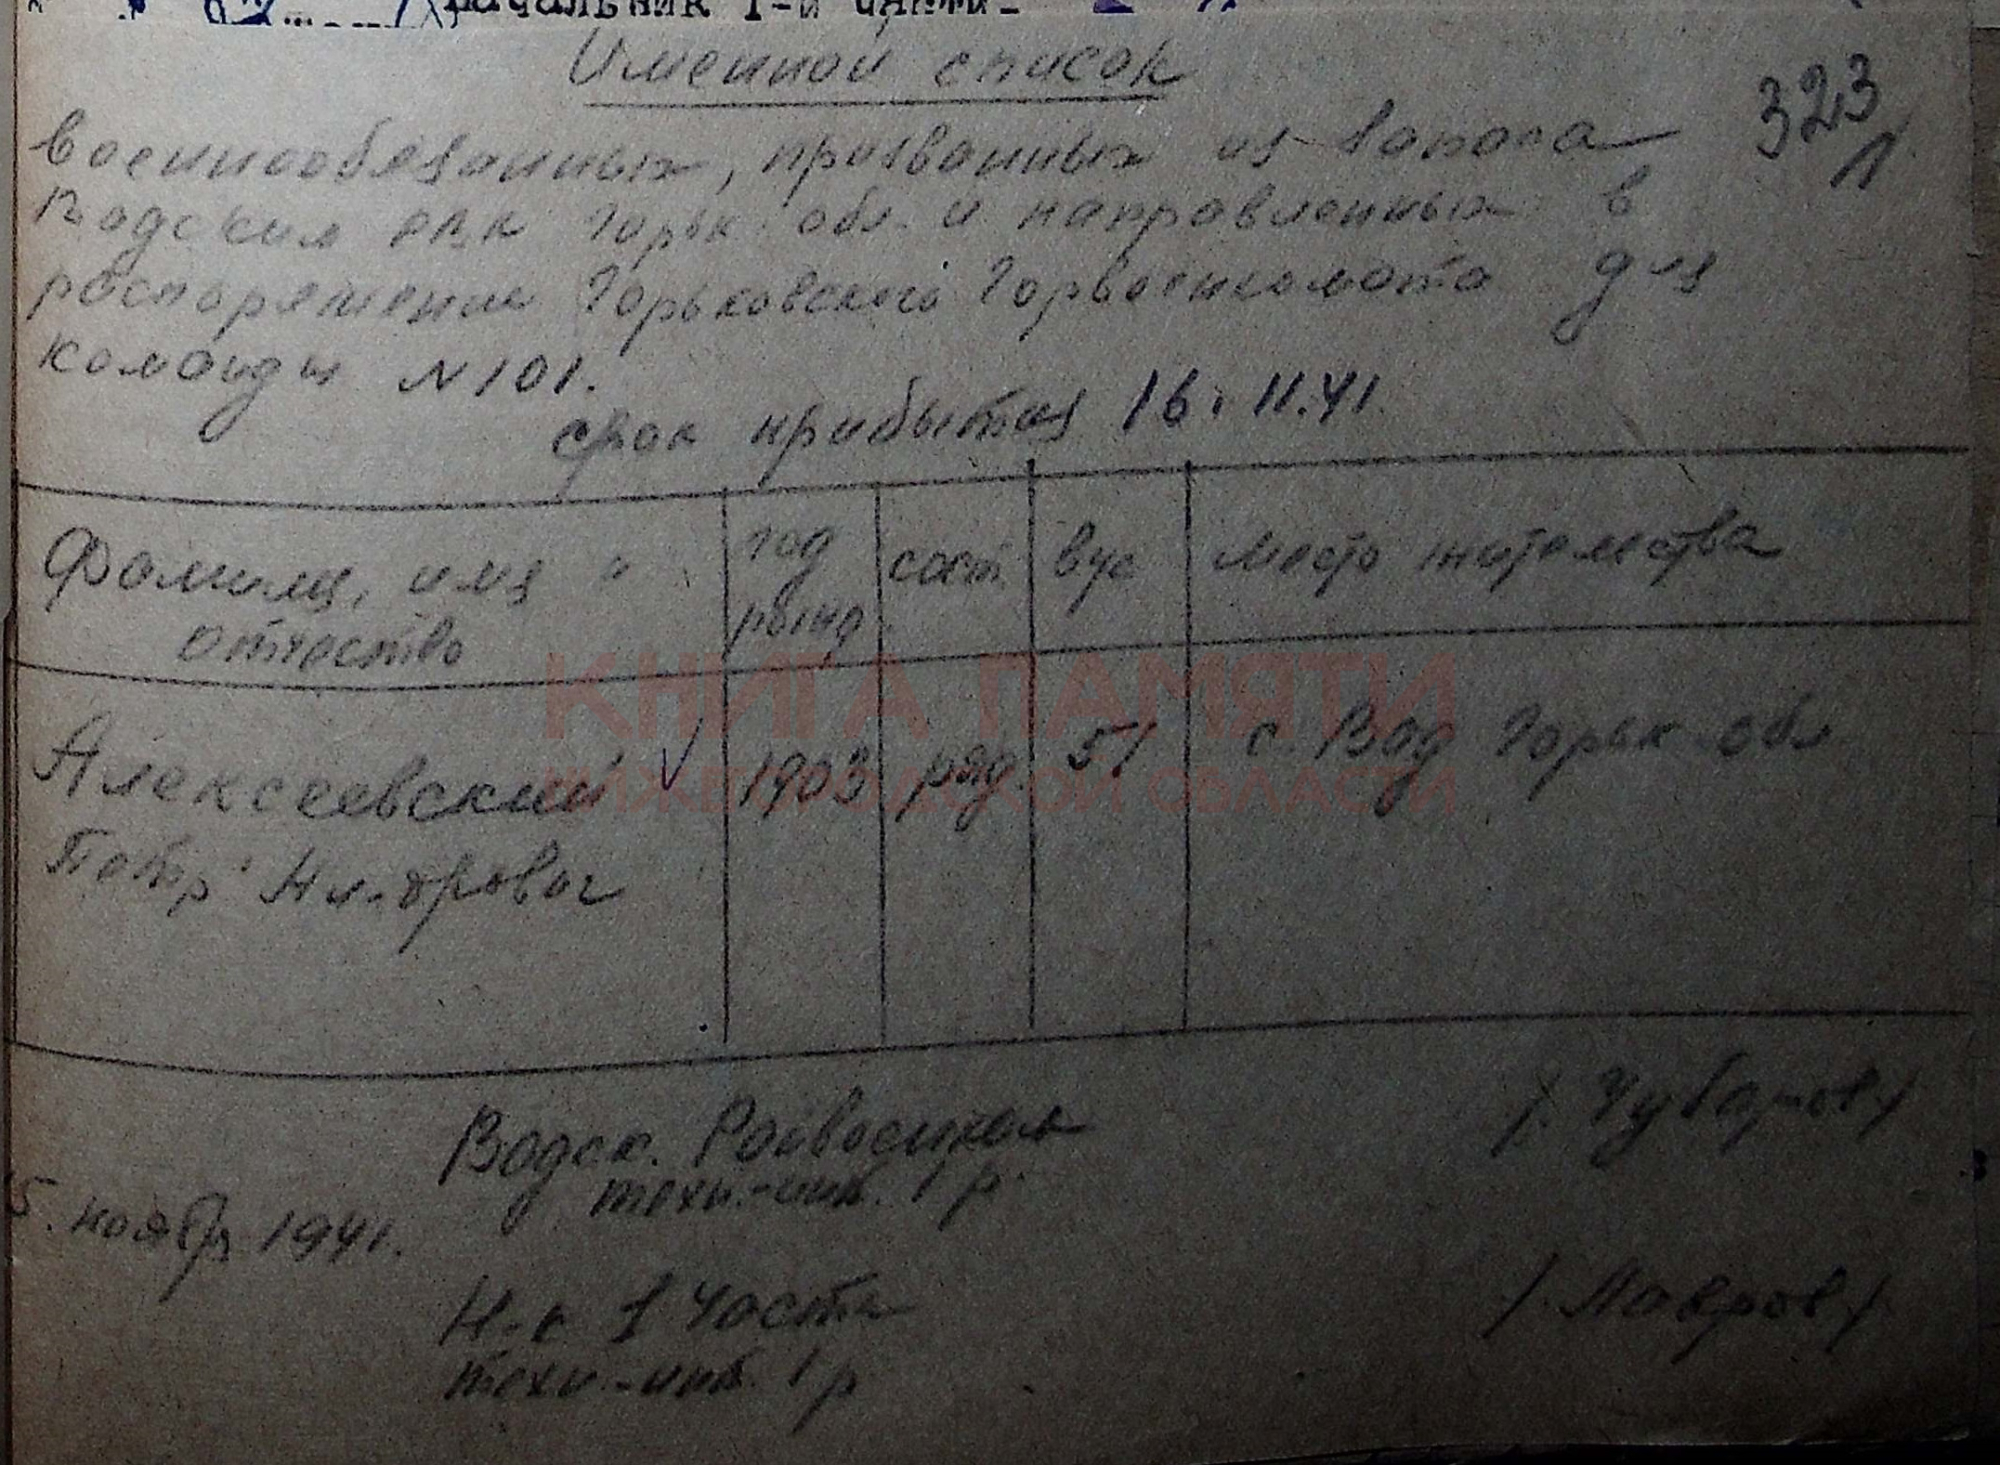 Начальник 1-й части
Именной список
323
военнообязанных, призванных из запаса
Вадским РВК Горьк. обл. и направленных в
распоряжение Горьковского Горвоенкомата для
команды N 101.
срок прибытия 16.11.41.
Фамилия, имя и отчество
год рожд
сост.
вус
место жительства
Алексеевский
Петр Ал-дрович
1903
ряд.
51
с. Вад Горьк обл
КНИГА ПАМЯТИ
НИЖЕГОРОДСКОЙ ОБЛАСТИ
Вадск. Райвоенком
техн.-инт. 1 р.
/Чубаров/
5. ноября 1941.
Н-к 1 части
техн.-инт. 1 р
/Лавров/